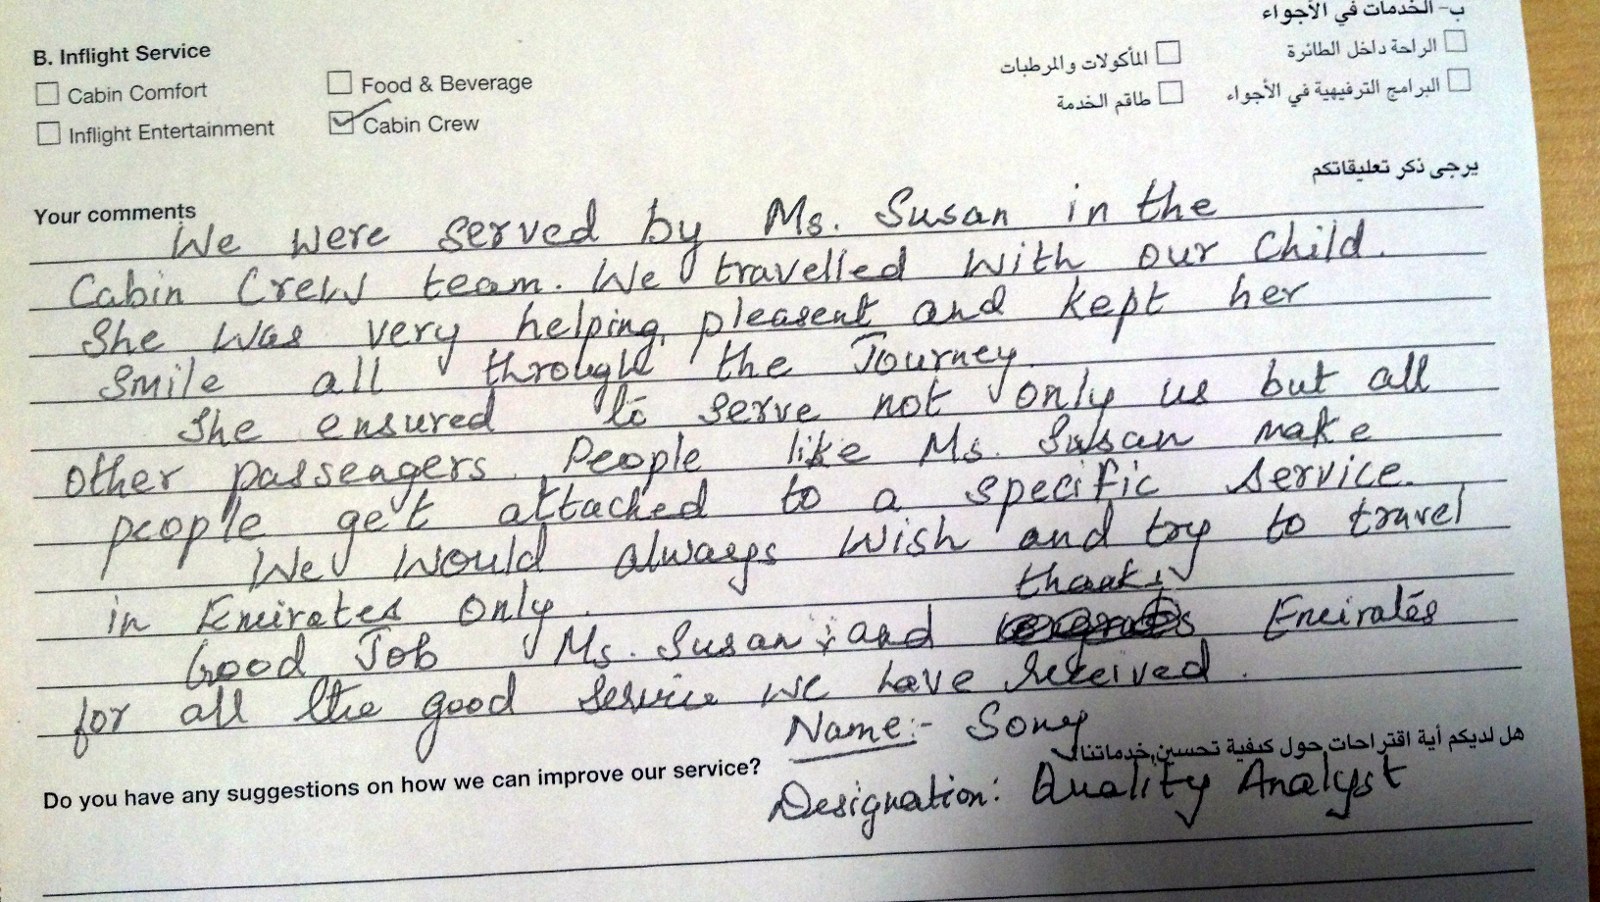 ب- الخدمات في الأجواء
B. Inflight Service
Cabin Comfort
Food & Beverage
المأكولات والمرطبات
الراحة داخل الطائرة
Inflight Entertainment
Cabin Crew
طاقم الخدمة
البرامج الترفيهية في الأجواء
يرجى ذكر تعليقاتكم
Your comments
We were served by Ms. Susan in the
Cabin Crew team. We travelled with our child.
She was very helping, pleasent and kept her
smile all through the Journey.
She ensured to serve not only us but all
other passengers. People like Ms. Susan make
people get attached to a specific service.
We would always wish and try to travel
in Emirates only.
thanks
Good Job Ms. Susan and Emirates
for all the good service we have received.
Name:- Sony
هل لديكم أية اقتراحات حول كيفية تحسين خدماتنا؟
Do you have any suggestions on how we can improve our service?
Designation: Quality Analyst